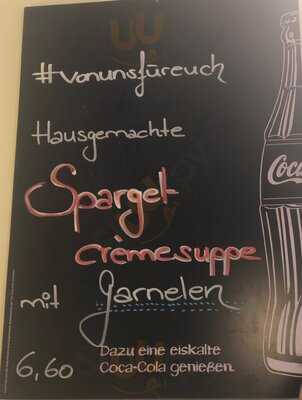 #vonunsfüreuch
Hausgemachte
Spargel-
crèmesuppe
mit Garnelen
6,60
Dazu eine eiskalte
Coca-Cola genießen.
Coca